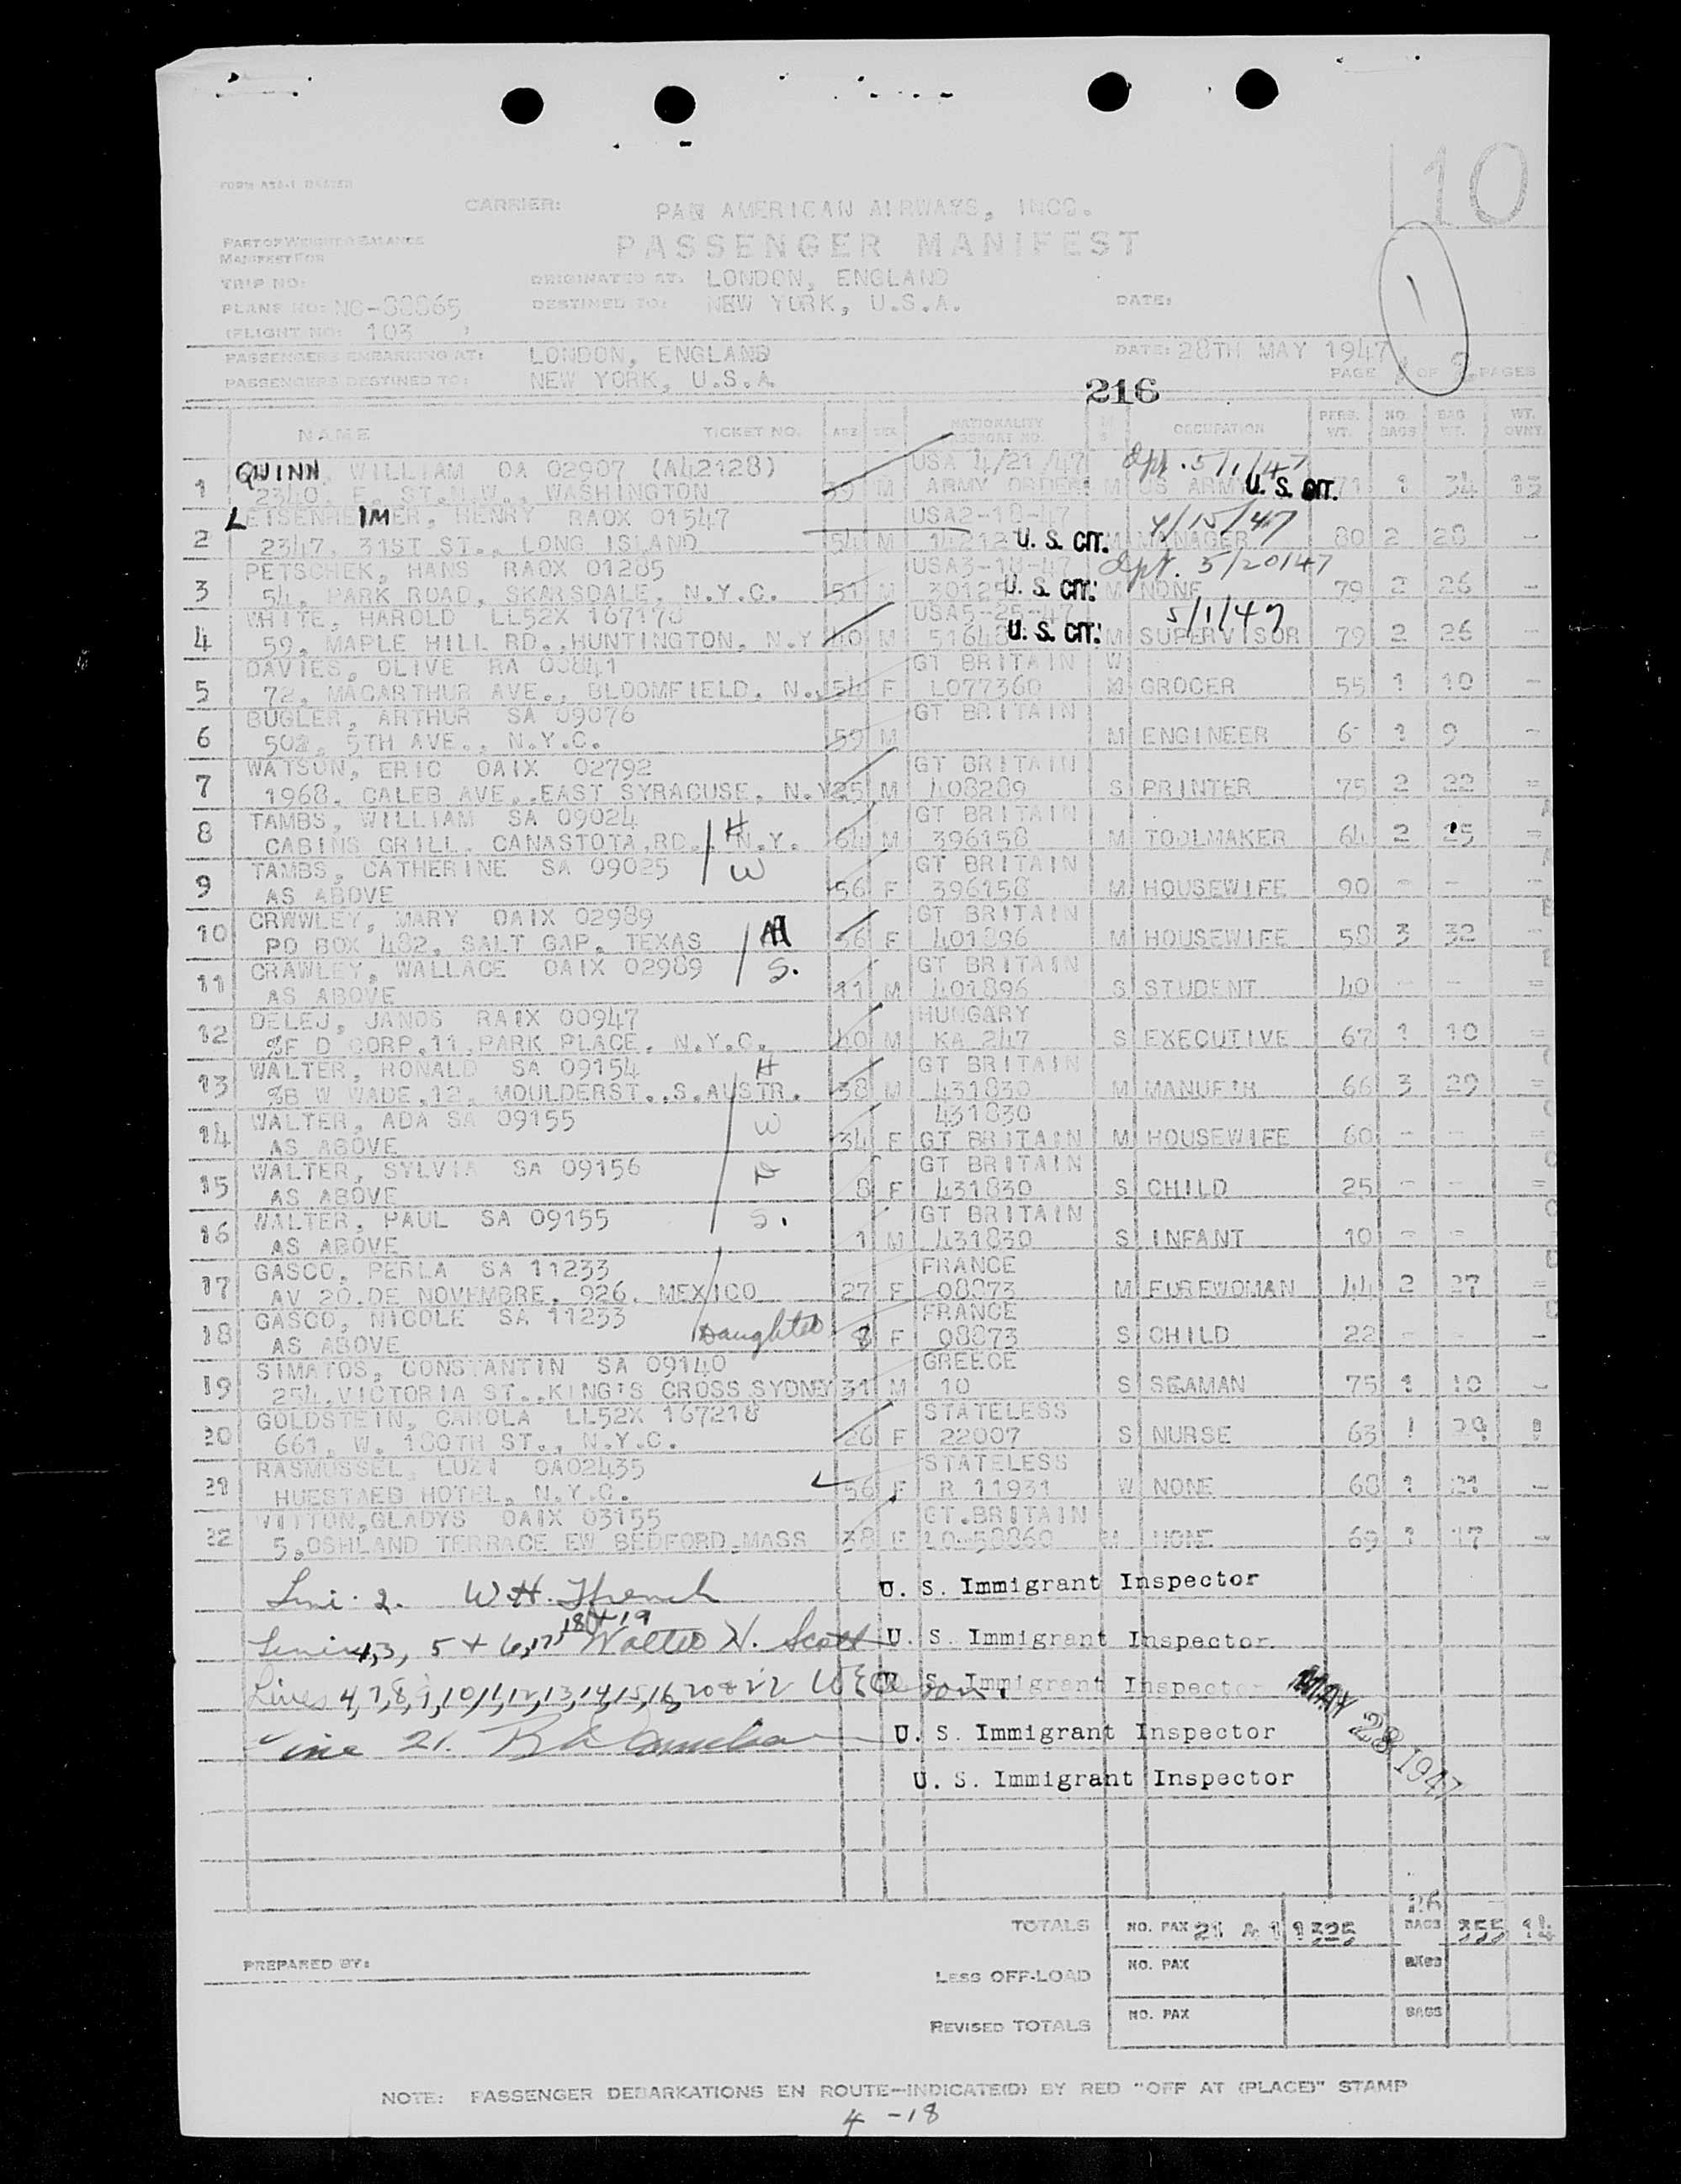 10
CARRIER: PAN AMERICAN AIRWAYS, INCO.
PART OF WEIGHT & BALANCE
MANIFEST FOR
PASSENGER MANIFEST
TRIP NO:
ORIGINATED AT: LONDON, ENGLAND
1
PLANE NO: NC-88865
DESTINED TO: NEW YORK, U.S.A.
DATE:
(FLIGHT NO: 103 )
PASSENGERS EMBARKING AT: LONDON, ENGLAND
DATE: 28TH MAY 1947
PASSENGERS DESTINED TO: NEW YORK, U.S.A.
PAGE OF PAGES
216
NAME TICKET NO. AGE SEX NATIONALITY PASSPORT NO. M S OCCUPATION PERS. WT. NO. BAGS BAG WT. WT. OVNT
QUINN, WILLIAM OA 02907 (A42128) USA 4/21/47 Dpt. 5/1/47
1 2340. E. ST.N.W., WASHINGTON 39 M ARMY ORDERS M US ARMY U. S. CIT. 71 1 34 13
LEISENHEIMER, HENRY RAOX 01547 USA2-18-47 4/15/47
2 2347. 31ST ST., LONG ISLAND 54 M U. S. CIT. M MANAGER 80 2 28 -
PETSCHEK, HANS RAOX 01285 USA3-18-47 Dpt. 5/20/47
3 54, PARK ROAD, SKARSDALE, N.Y.C. 51 M 30125 U. S. CIT. M NONE 79 2 26 -
WHITE, HAROLD LL52X 167178 USA5-26-47 5/1/47
4 59, MAPLE HILL RD.,HUNTINGTON, N.Y 40 M 51648 U. S. CIT. M SUPERVISOR 79 2 26 -
DAVIES, OLIVE RA 00841 GT BRITAIN W
5 72, MACARTHUR AVE., BLOOMFIELD, N. 54 F L077360 GROCER 55 1 10 -
BUGLER, ARTHUR SA 09076 GT BRITAIN
6 502, 5TH AVE., N.Y.C. 59 M M ENGINEER 6 1 9 -
WATSON, ERIC OAIX 02792 GT BRITAIN
7 1968. CALEB AVE.,EAST SYRACUSE, N.Y 25 M 408289 S PRINTER 75 2 22 =
TAMBS, WILLIAM SA 09024 H GT BRITAIN
8 CABINS GRILL. CANASTOTA.RD., N.Y. 64 M 396158 M TOOLMAKER 64 2 25 =
TAMBS, CATHERINE SA 09025 W GT BRITAIN
9 AS ABOVE 56 F 396158 M HOUSEWIFE 90 - - -
CRWWLEY, MARY OAIX 02989 GT BRITAIN
10 PO BOX 482, SALT GAP, TEXAS 36 F 401896 M HOUSEWIFE 58 3 32 -
CRAWLEY, WALLACE OAIX 02989 S. GT BRITAIN
11 AS ABOVE 11 M 401896 S STUDENT 40 - - =
DELEJ, JANOS RAIX 00947 HUNGARY
12 %F D CORP.11.PARK PLACE. N.Y.C. 40 M KA 247 S EXECUTIVE 67 1 10 =
WALTER, RONALD SA 09154 H GT BRITAIN
13 %B W WADE.12. MOULDERST.,S.AUSTR. 38 M 431830 M MANUFTR 66 3 29 =
WALTER, ADA SA 09155 W 431830
14 AS ABOVE 34 F GT BRITAIN M HOUSEWIFE 60 - - =
WALTER, SYLVIA SA 09156 D GT BRITAIN
15 AS ABOVE 8 F 431830 S CHILD 25 - - =
WALTER, PAUL SA 09155 S. GT BRITAIN
16 AS ABOVE 1 M 431830 S INFANT 10 - -
GASCO, PERLA SA 11233 FRANCE
17 AV 20.DE NOVEMBRE. 926. MEXICO 27 F 08873 M FUREWOMAN 44 2 27 =
GASCO, NICOLE SA 11233 Daughter FRANCE
18 AS ABOVE 8 F 08873 S CHILD 22 - - -
SIMATOS, CONSTANTIN SA 09140 GREECE
19 254.VICTORIA ST.,KING'S CROSS SYDNEY 31 M 10 S SEAMAN 75 1 10 -
GOLDSTEIN, CAROLA LL52X 167218 STATELESS
20 661. W. 180TH ST., N.Y.C. 26 F 22007 S NURSE 63 1 29
RASMUSSEL, LUZI OA02435 STATELESS
21 HUESTAED HOTEL, N.Y.C. 56 F R 11931 W NONE 68 1 21 -
VITTON,GLADYS OAIX 03155 GT.BRITAIN
22 5.OSHLAND TERRACE EW BEDFORD.MASS 38 F LO-58860 M NONE 69 1 17 -
Line 2. W.H. French U. S. Immigrant Inspector
18 + 19
Lines 1,3, 5 + 6, 17, Walter N. Scott U. S. Immigrant Inspector
Lines 4,7,8,9,10,11,12,13,14,15,16,20 & 22 U. S. Immigrant Inspector
MAY 28 1947
Line 21. U. S. Immigrant Inspector
U. S. Immigrant Inspector
TOTALS NO. PAX 21 & 1 1325 26 BAGS 355 14
PREPARED BY:
LESS OFF-LOAD NO. PAX BAGS
REVISED TOTALS NO. PAX BAGS
NOTE: PASSENGER DEBARKATIONS EN ROUTE-INDICATE(D) BY RED "OFF AT (PLACE)" STAMP
4 -18